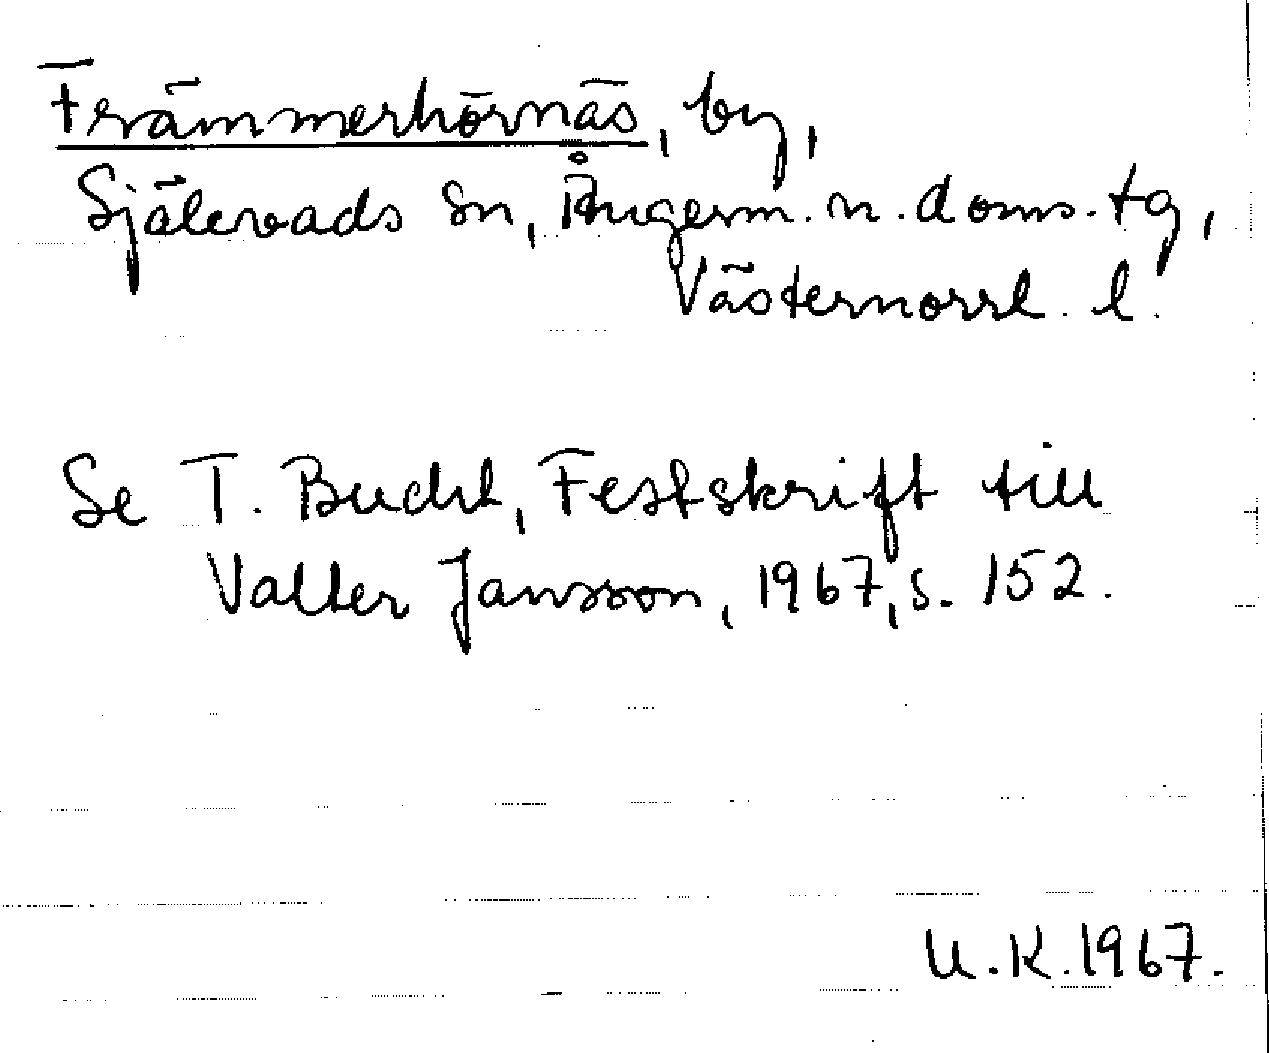 Främmerhörnäs, by,
Själevads sn, Ångerm. n. doms. tg,
Västernorrl. l.
Se T. Bucht, Festskrift till
Valter Jansson, 1967, s. 152.
U.K. 1967.